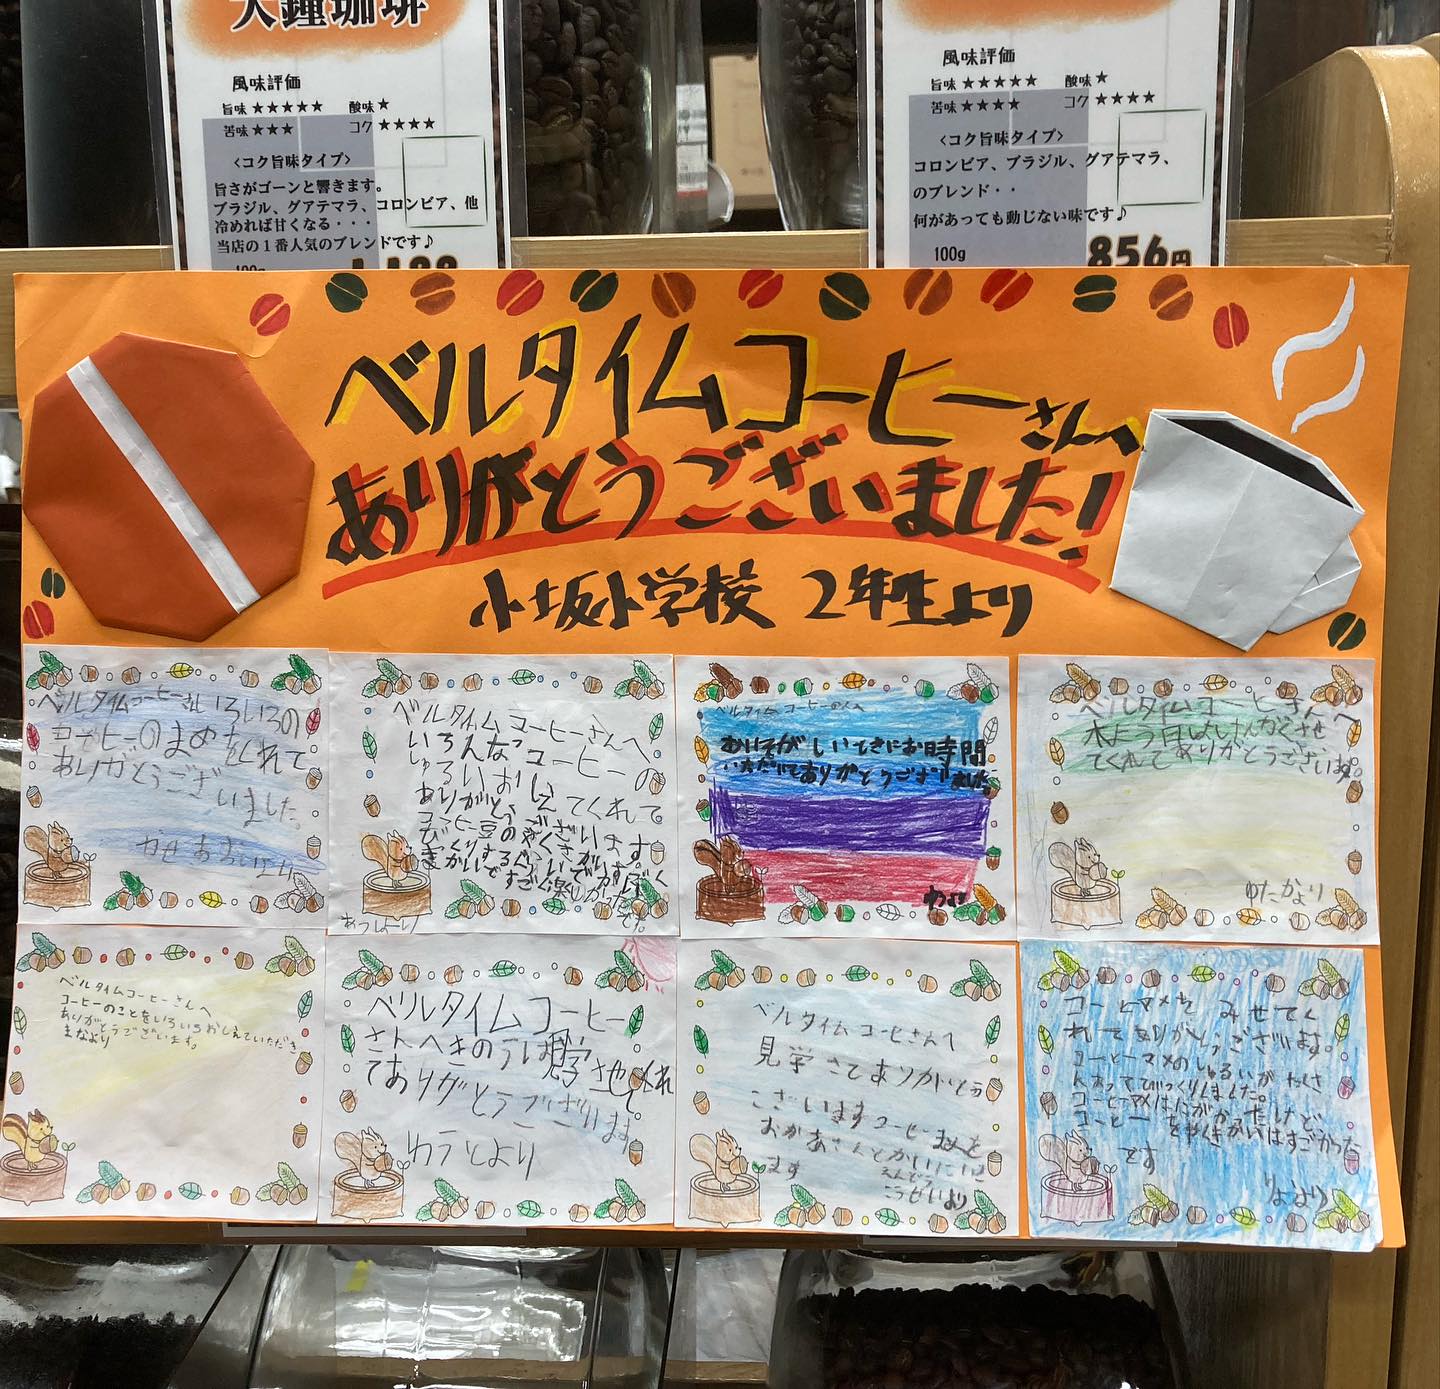 大鐘珈琲
風味評価
旨味★★★★★ 酸味★
苦味★★★ コク★★★★
<コク旨味タイプ>
旨さがゴーンと響きます。
ブラジル、グアテマラ、コロンビア、他
冷めれば甘くなる・・・
当店の1番人気のブレンドです♪
100g
風味評価
旨味★★★★★ 酸味★
苦味★★★★ コク★★★★
<コク旨味タイプ>
コロンビア、ブラジル、グアテマラ、
のブレンド・・
何があっても動じない味です♪
100g 856円
ベルタイムコーヒーさんへ
ありがとうございました!
小坂小学校 2年生より
ベルタイムコーヒーさん いろいろの
コーヒーのまめをくれて
ありがとうございました。
ベルタイムコーヒーさんへ
いろんなコーヒーの
しゅるいおしえてくれて
ありがとうございます。
コーヒー豆の
びっくりするぐらい
すごく楽しかった
です。
あつしより
ベルタイムコーヒーのへ
おいそがしいときにお時間
いただいてありがとうございました。
わより
ベルタイムコーヒーさんへ
てくれてありがとうございます
ゆたかより
ベルタイムコーヒーさんへ
コーヒーのことをいろいろおしえていただき
ありがとうございます。
まなより
ベルタイムコーヒー
さんへきのうは見学させてくれ
てありがとうございます。
ベルタイムコーヒさんへ
見学 させてありがとう
ございますコーヒーまめを
おかあさんとかいにいき
ます
えんどう
こうせいより
コーヒーマメをみせてく
れてありがとうございます。
コーヒーマメのしゅるいがたくさ
んあってびっくりしました。
コーヒーマメはにがかったけど
コーヒー
はすごかった
です
りょうより